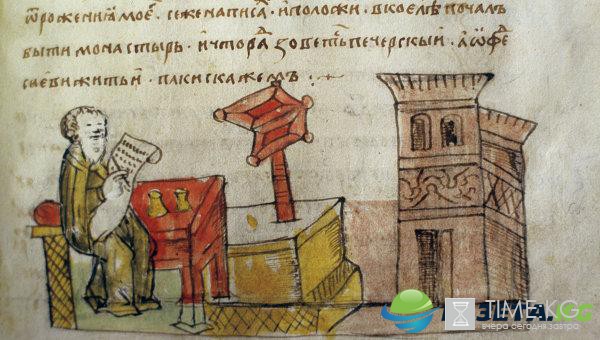 ѿ рожениꙗ моеⷢ · се же написаⷯ · и положи · в кое лѣ почалъ
быти монастырь · и чтораⷣ зоветⷭь печерскый · а ѡ фе
житьи · паки скажемъ ·
TIME.KG
вчера сегодня завтра